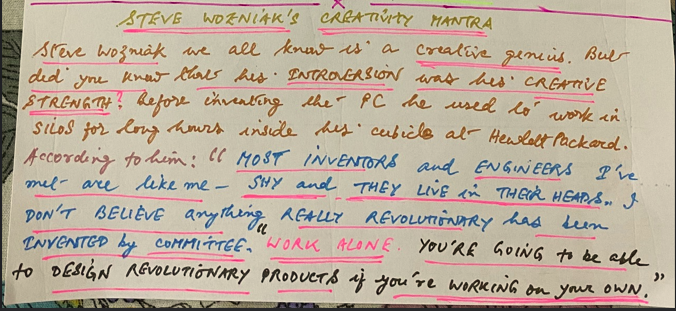 STEVE WOZNIAK'S CREATIVITY MANTRA
Steve wozniak we all know is a creative genius. But
did you know that his INTROVERSION was his CREATIVE
STRENGTH? Before inventing the PC he used to work in
SILOS for long hours inside his cubicle at Hewlett Packard.
According to him: "MOST INVENTORS and ENGINEERS I've
met are like me - SHY and THEY LIVE in THEIR HEADS.. I
DON'T BELIEVE anything REALLY REVOLUTIONARY has been
INVENTED by COMMITTEE. "WORK ALONE. YOU'RE GOING to be able
to DESIGN REVOLUTIONARY PRODUCTS if you're WORKING on your OWN."